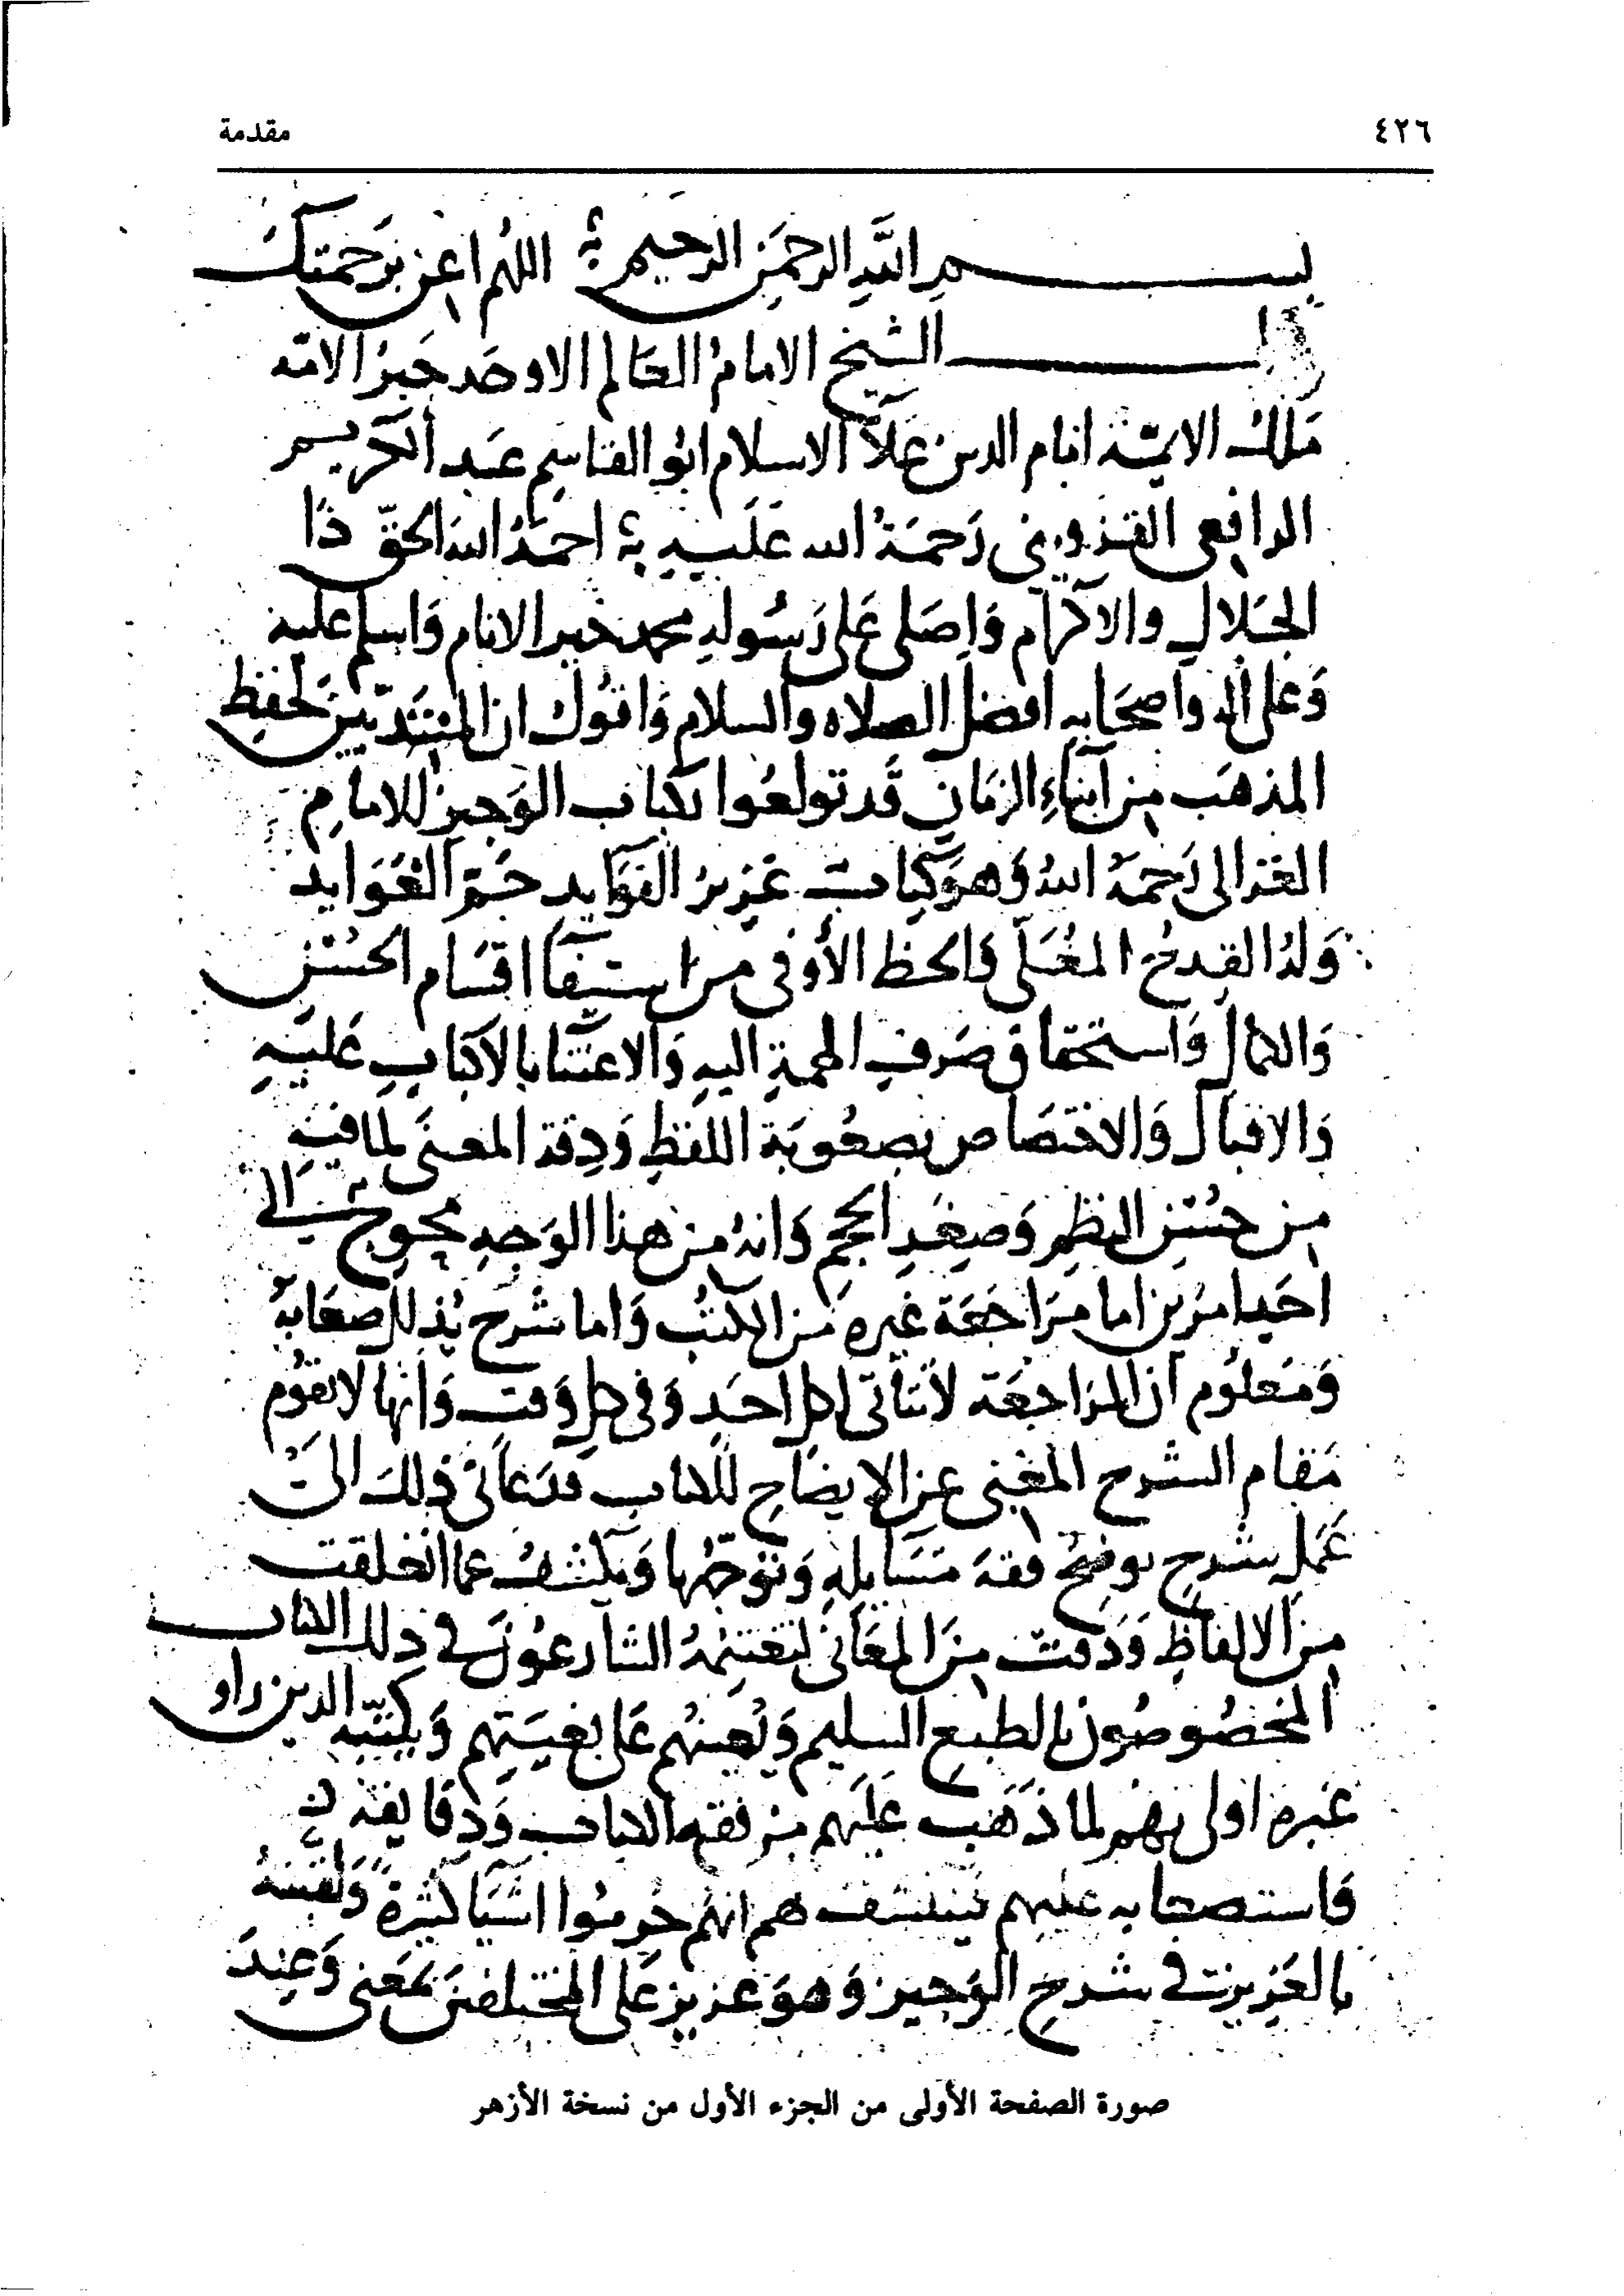 ٤٢٦ مقدمة
بسم الله الرحمن الرحيم اللهم اعن برحمتك
قال الشيخ الامام العالم الاوحد حبر الامة
ملك الايمة امام الدين علا الاسلام ابو القاسم عبد الكريم
الرافعي القزويني رحمة الله عليه احمد الله الحق ذا
الجلال والاكرام واصلي على رسوله محمد خير الانام واسلم عليه
وعلى اله واصحابه افضل الصلاه والسلام واقول ان المبتدئين لحفظ
المذهب من ابناء الزمان قد تولعوا بكتاب الوجيز للامام
الغزالي رحمه الله وهو كتاب غزير الفوايد جم العوايد
وله القدح المعلى والحظ الأوفى من استيفا اقسام الحسن
والكمال واستحقاق صرف الهمة اليه والاعتنا بالاكباب عليه
والاقبال والاختصاص بصعوبة اللفظ ودقة المعنى لما فيه
من حسن النظم وصغر الحجم وانه من هذا الوجه محوج الى
احد امرين اما مراجعة غيره من الكتب واما شرح يذلل صعابه
ومعلوم ان المراجعة لا تتأتى لكل احد وفي كل وقت وانها لا تقوم
مقام الشرح المغني عن الايضاح للكتاب فدعاني ذلك الى
عمل شرح يوضح فقه مسايله ويوجهها ويكشف عما انغلقت
من الالفاظ ودقت من المعاني ليغتنمه الشارعون في ذلك الكتاب
المخصوصون بالطبع السليم ويعينهم على بغيتهم ويتنبه الذين راو
غيره اولى بهم لما ذهب عليهم من فقه الكتاب ودقايقه
واستصعابه عليهم فينكشف لهم انهم حرموا اشيا كثيرة ولقبته
بالعزيز في شرح الوجيز وهو عزيز على المختلفين بمعنى وعند
صورة الصفحة الأولى من الجزء الأول من نسخة الأزهر